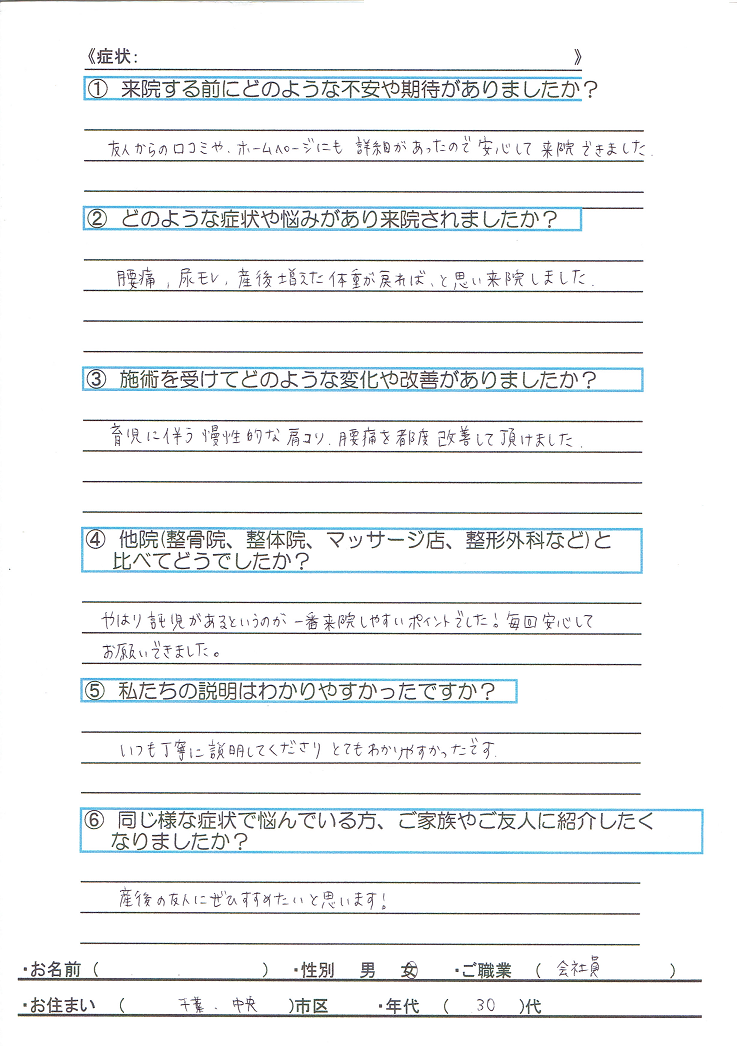 《症状: 》
① 来院する前にどのような不安や期待がありましたか？
友人からの口コミや、ホームページにも 詳細があったので 安心して 来院できました.
② どのような症状や悩みがあり来院されましたか？
腰痛 , 尿モレ , 産後増えた体重が戻れば、と思い来院しました.
③ 施術を受けてどのような変化や改善がありましたか？
育児に伴う慢性的な肩コリ、腰痛を都度改善して頂けました.
④ 他院(整骨院、整体院、マッサージ店、整形外科など)と
比べてどうでしたか？
やはり託児があるというのが 一番来院しやすいポイントでした! 毎回安心して
お願いできました。
⑤ 私たちの説明はわかりやすかったですか？
いつも丁寧に説明してくださり とてもわかりやすかったです.
⑥ 同じ様な症状で悩んでいる方、ご家族やご友人に紹介したく
なりましたか？
産後の友人にぜひすすめたいと思います!
・お名前 ( ) ・性別 男 女 ・ご職業 ( 会社員 )
・お住まい ( 千葉 . 中央 )市区 ・年代 ( 30 )代